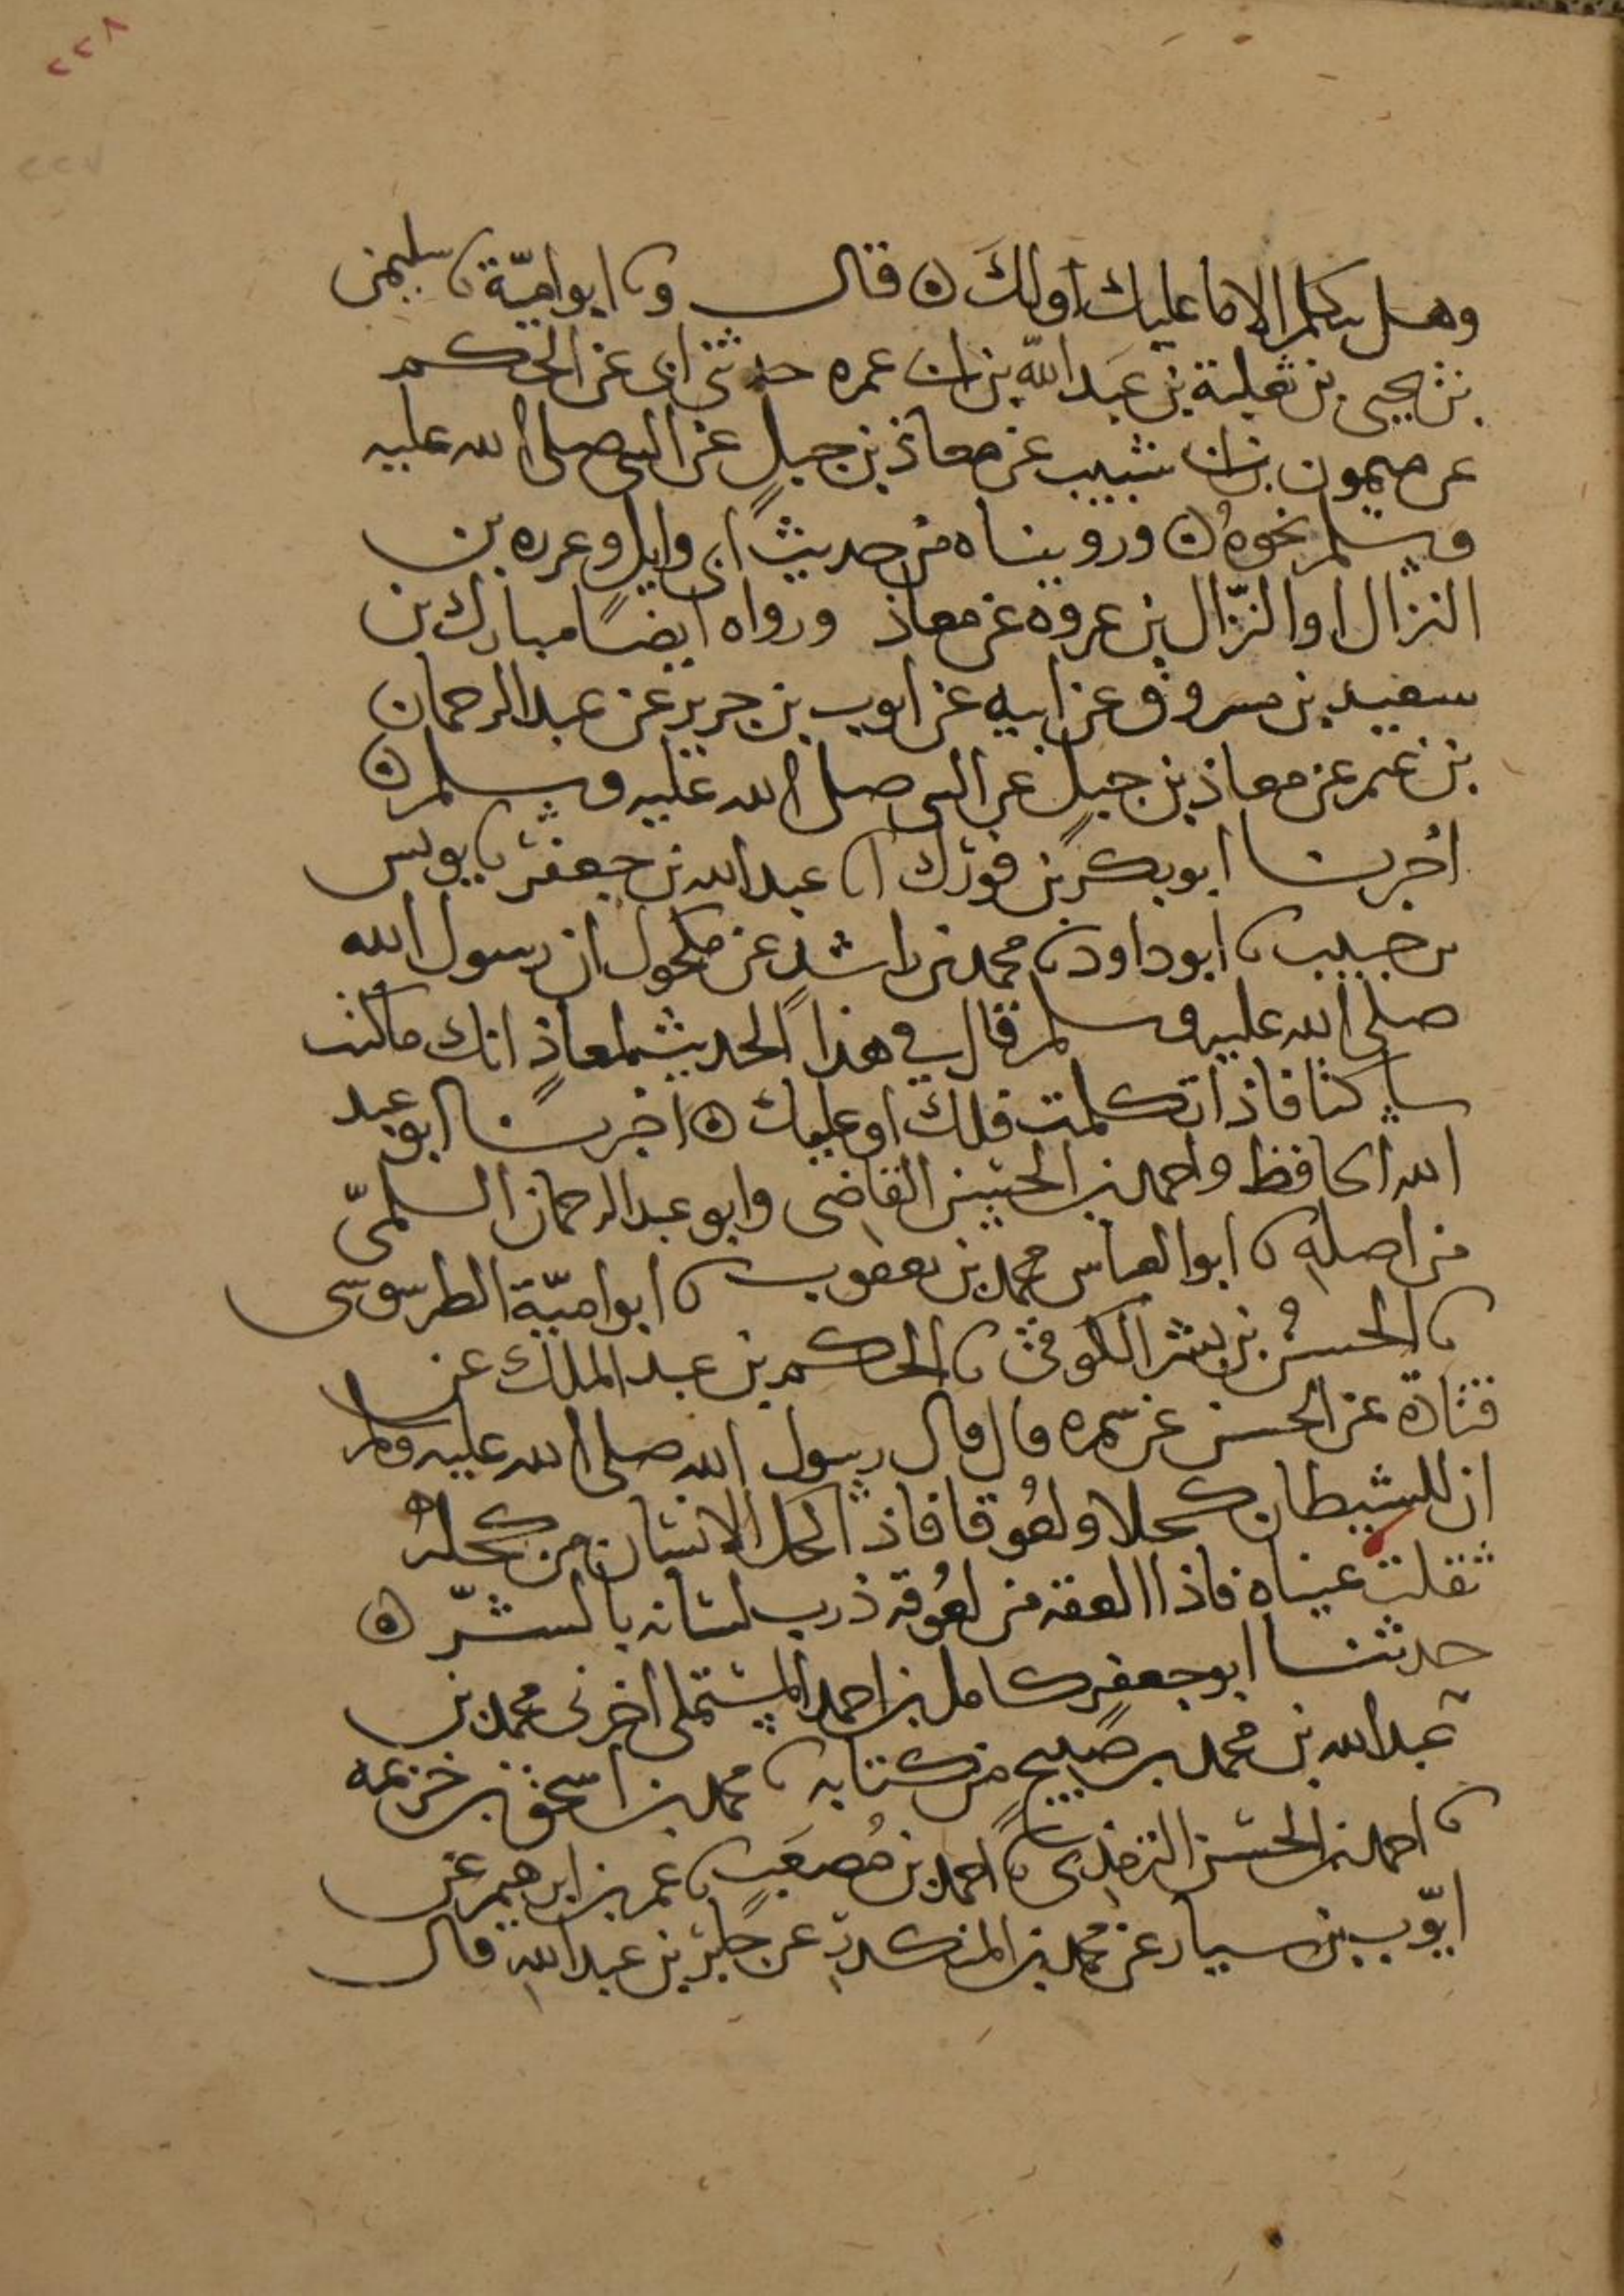 ٢٢٨
٢٢٧
وهل يتكلم الا ما عليك او لك ٥ قال ونا ابو امية نا سليمن
بن يحيى بن ثعلبة بن عبد الله بن ابي عمره حدثني ابي عن الحكم
عن ميمون بن ابي شبيب عن معاذ بن جبل عن النبي صلى الله عليه
وسلم نحوه ٥ ورويناه من حديث ابي وايل وعروه بن
النزال او النزال بن عروة عن معاذ ورواه ايضا مبارك بن
سعيد بن مسروق عن ابيه عن ايوب بن جرير عن عبد الرحمان
بن غنم عن معاذ بن جبل عن النبي صلى الله عليه وسلم ٥
اخبرنا ابو بكر بن فورك انا عبد الله بن جعفر نا يونس
بن حبيب نا ابو داود نا محمد بن راشد عن مكحول ان رسول الله
صلى الله عليه وسلم قال في هذا الحديث لمعاذ انك ما كنت
ساكتا فاذا تكلمت فلك او عليك ٥ اخبرنا ابو عبد
الله الحافظ واحمد بن الحسين القاضي وابو عبد الرحمان السلمي
من اصله نا ابو العباس محمد بن يعقوب نا ابو امية الطرسوسي
نا الحسن بن بشر الكوفي نا الحكم بن عبد الملك عن
قتادة عن الحسن عن سمره قال قال رسول الله صلى الله عليه وسلم
ان للشيطان كحلا ولعوقا فاذا اكتحل الانسان من كحله
ثقلت عيناه فاذا العقه من لعوقه ذرب لسانه بالشر ٥
حدثنا ابو جعفر كامل بن احمد المستملي اخبرني محمد بن
عبد الله بن محمد بن صبيح من كتابه نا محمد بن اسحق بن خزيمه
نا احمد بن الحسن الترمذي نا احمد بن مصعب نا عمر بن ابرهيم عن
ايوب بن سيار عن محمد بن المنكدر عن جابر بن عبد الله قال